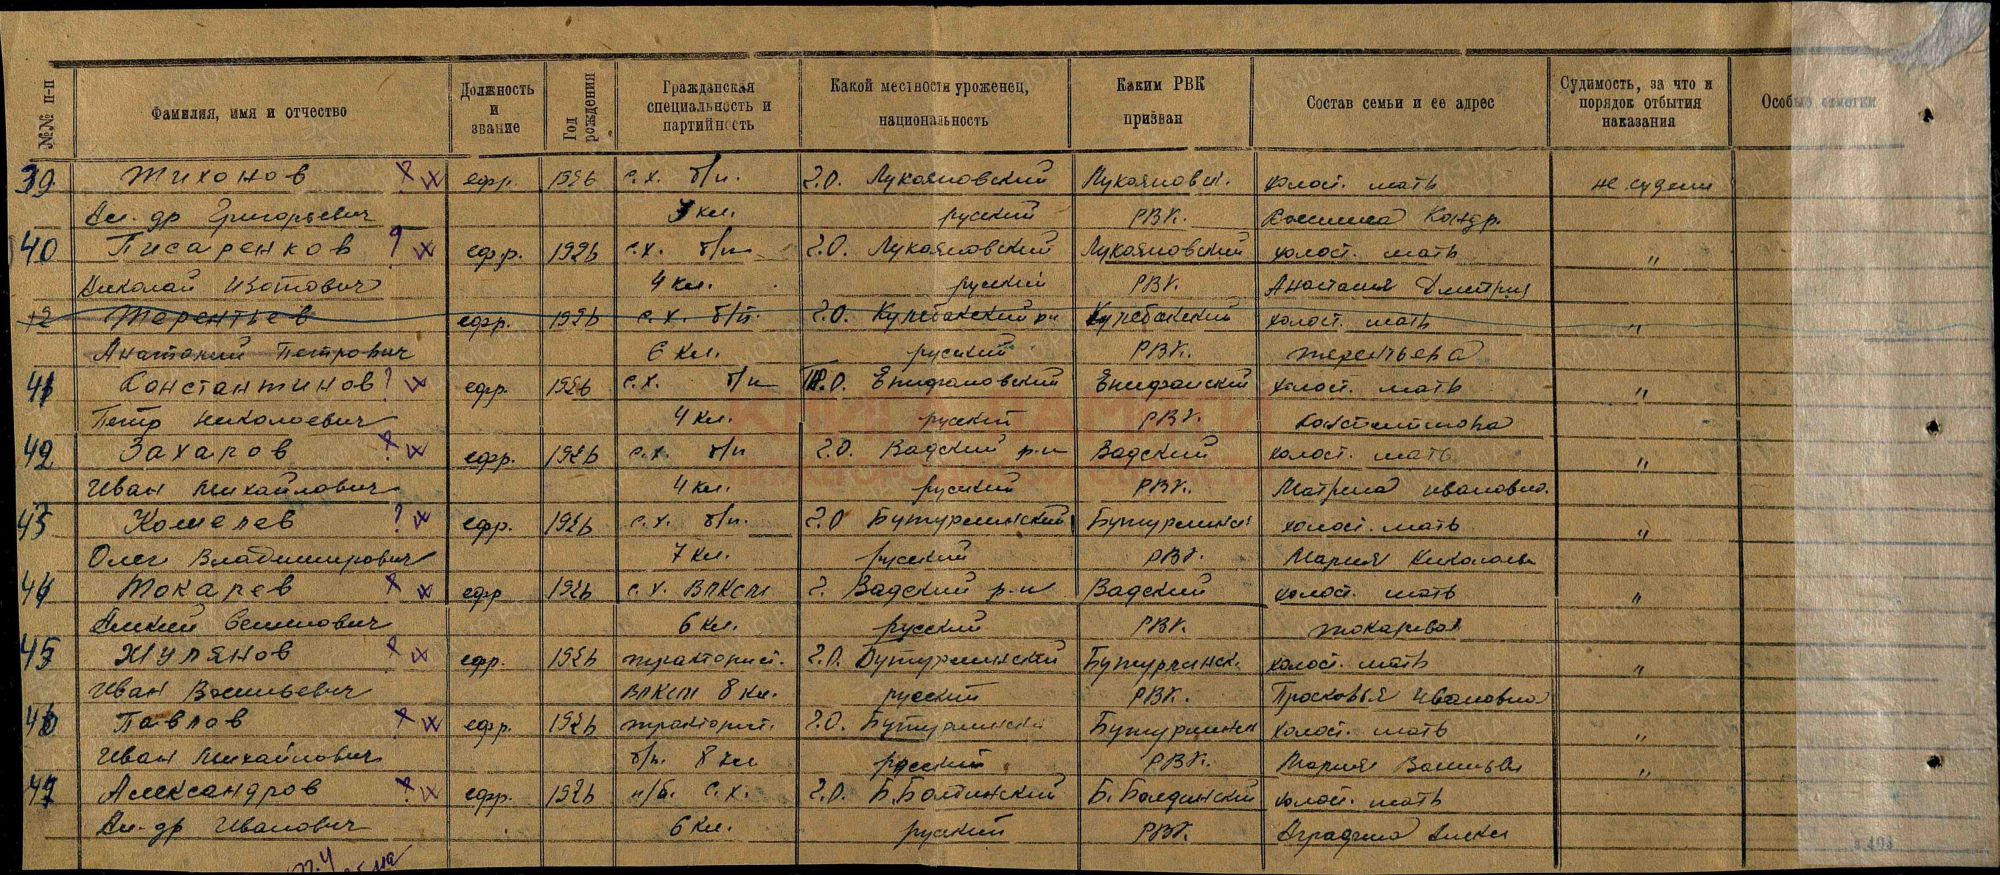 №№ п-п Фамилия, имя и отчество Должность и звание Год рождения Гражданская специальность и партийность Какой местности уроженец, национальность Каким РВК призван Состав семьи и ее адрес Судимость, за что и порядок отбытия наказания Особые отметки
39 Тихонов ефр. 1926 с.х. б/п. Г.О. Лукояновский Лукояновск. холост. мать не судим
Ал-др Григорьевич 7 кл. русский РВК.
40 Писаренков ? ефр. 1926 с.х. б/п Г.О. Лукояновский Лукояновский холост. мать "
Николай Изотович 4 кл. русский РВК. Анастасия Дмитрия
12 Терентьев ефр. 1926 с.х. б/п. Г.О. Кулебакский рн Кулебакский холост. мать "
Анатолий Петрович 6 кл. русский РВК. Терентьева
41 Константинов ? ефр. 1926 с.х. б/п Т.О. Епифановский Епифанский холост. мать "
Петр Николаевич 4 кл. русский РВК. Константинова
42 Захаров ефр. 1926 с.х. б/п Г.О. Вадский р-н Вадский холост. мать "
Иван Михайлович 4 кл. русский РВК. Матрена Ивановна.
43 Кошелев ? ефр. 1926 с.х. б/п. Г.О Бутурлинский Бутурлински холост. мать "
Олег Владимирович 7 кл. русский РВК. Мария Николаев
44 Токарев ефр 1926 с.х. ВЛКСМ Г. Вадский р-н Вадский холост. мать "
6 кл. русский РВК. Токарева
45 Жулянов ефр. 1926 тракторист. Г.О. Бутурлинский Бутурлинск. холост. мать "
Иван Васильевич ВЛКСМ 8 кл. русский РВК. Просковья Ивановна
46 Павлов ефр. 1926 тракторист. Г.О. Бутурлински Бутурлински холост. мать "
Иван Михайлович б/п. 8 кл русский РВК. Мария Васильев "
47 Александров ефр. 1926 п/б. с.х. Г.О. Б.Болдинский Б. Болдинский холост. мать
Ал-др Иванович 6 кл. русский РВК.
КНИГА ПАМЯТИ
НИЖЕГОРОДСКОЙ ОБЛАСТИ